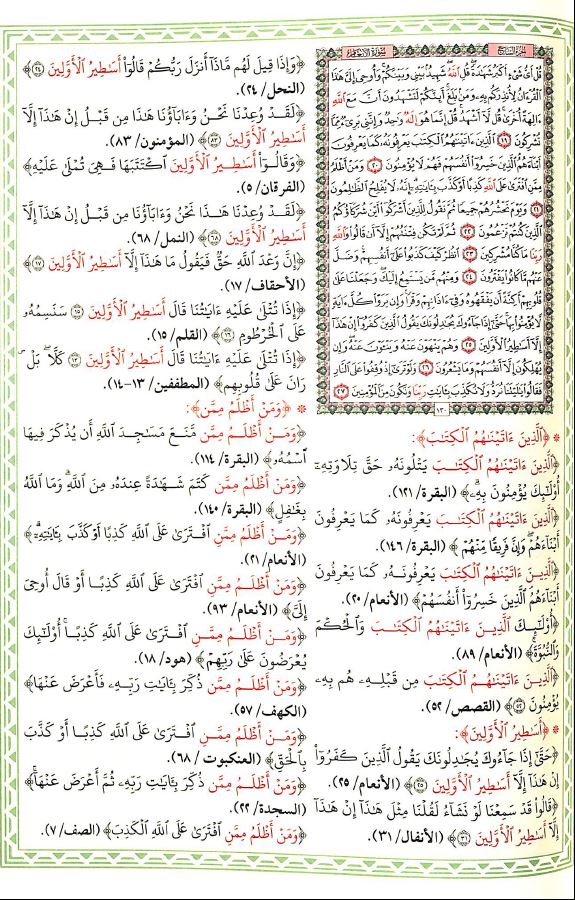 الجزء السابع
سورة الأنعام
قُلْ أَىُّ شَىْءٍ أَكْبَرُ شَهَٰدَةً قُلِ ٱللَّهُ شَهِيدٌۢ بَيْنِى وَبَيْنَكُمْ وَأُوحِىَ إِلَىَّ هَٰذَا
ٱلْقُرْءَانُ لِأُنذِرَكُم بِهِۦ وَمَنۢ بَلَغَ أَئِنَّكُمْ لَتَشْهَدُونَ أَنَّ مَعَ ٱللَّهِ
ءَالِهَةً أُخْرَىٰ قُل لَّآ أَشْهَدُ قُلْ إِنَّمَا هُوَ إِلَٰهٌ وَٰحِدٌ وَإِنَّنِى بَرِىٓءٌ مِّمَّا
تُشْرِكُونَ ١٩ ٱلَّذِينَ ءَاتَيْنَٰهُمُ ٱلْكِتَٰبَ يَعْرِفُونَهُۥ كَمَا يَعْرِفُونَ
أَبْنَآءَهُمُ ٱلَّذِينَ خَسِرُوٓا۟ أَنفُسَهُمْ فَهُمْ لَا يُؤْمِنُونَ ٢٠ وَمَنْ أَظْلَمُ
مِمَّنِ ٱفْتَرَىٰ عَلَى ٱللَّهِ كَذِبًا أَوْ كَذَّبَ بِـَٔايَٰتِهِۦٓ إِنَّهُۥ لَا يُفْلِحُ ٱلظَّٰلِمُونَ
٢١ وَيَوْمَ نَحْشُرُهُمْ جَمِيعًا ثُمَّ نَقُولُ لِلَّذِينَ أَشْرَكُوٓا۟ أَيْنَ شُرَكَآؤُكُمُ
ٱلَّذِينَ كُنتُمْ تَزْعُمُونَ ٢٢ ثُمَّ لَمْ تَكُن فِتْنَتُهُمْ إِلَّآ أَن قَالُوا۟ وَٱللَّهِ
رَبِّنَا مَا كُنَّا مُشْرِكِينَ ٢٣ ٱنظُرْ كَيْفَ كَذَبُوا۟ عَلَىٰٓ أَنفُسِهِمْ وَضَلَّ
عَنْهُم مَّا كَانُوا۟ يَفْتَرُونَ ٢٤ وَمِنْهُم مَّن يَسْتَمِعُ إِلَيْكَ وَجَعَلْنَا عَلَىٰ
قُلُوبِهِمْ أَكِنَّةً أَن يَفْقَهُوهُ وَفِىٓ ءَاذَانِهِمْ وَقْرًا وَإِن يَرَوْا۟ كُلَّ ءَايَةٍ
لَّا يُؤْمِنُوا۟ بِهَا حَتَّىٰٓ إِذَا جَآءُوكَ يُجَٰدِلُونَكَ يَقُولُ ٱلَّذِينَ كَفَرُوٓا۟ إِنْ هَٰذَآ
إِلَّآ أَسَٰطِيرُ ٱلْأَوَّلِينَ ٢٥ وَهُمْ يَنْهَوْنَ عَنْهُ وَيَنْـَٔوْنَ عَنْهُ وَإِن
يُهْلِكُونَ إِلَّآ أَنفُسَهُمْ وَمَا يَشْعُرُونَ ٢٦ وَلَوْ تَرَىٰٓ إِذْ وُقِفُوا۟ عَلَى ٱلنَّارِ
فَقَالُوا۟ يَٰلَيْتَنَا نُرَدُّ وَلَا نُكَذِّبَ بِـَٔايَٰتِ رَبِّنَا وَنَكُونَ مِنَ ٱلْمُؤْمِنِينَ ٢٧
١٣٠
* ﴿ٱلَّذِينَ ءَاتَيْنَٰهُمُ ٱلْكِتَٰبَ﴾:
﴿ٱلَّذِينَ ءَاتَيْنَٰهُمُ ٱلْكِتَٰبَ يَتْلُونَهُۥ حَقَّ تِلَاوَتِهِۦٓ
أُو۟لَٰٓئِكَ يُؤْمِنُونَ بِهِۦ﴾ (البقرة/ ١٢١)
﴿ٱلَّذِينَ ءَاتَيْنَٰهُمُ ٱلْكِتَٰبَ يَعْرِفُونَهُۥ كَمَا يَعْرِفُونَ
أَبْنَآءَهُمْ وَإِنَّ فَرِيقًا مِّنْهُمْ﴾ (البقرة/ ١٤٦).
﴿ٱلَّذِينَ ءَاتَيْنَٰهُمُ ٱلْكِتَٰبَ يَعْرِفُونَهُۥ كَمَا يَعْرِفُونَ
أَبْنَآءَهُمُ ٱلَّذِينَ خَسِرُوٓا۟ أَنفُسَهُمْ﴾ (الأنعام/ ٢٠).
﴿أُو۟لَٰٓئِكَ ٱلَّذِينَ ءَاتَيْنَٰهُمُ ٱلْكِتَٰبَ وَٱلْحُكْمَ
وَٱلنُّبُوَّةَ﴾ (الأنعام/ ٨٩)
﴿ٱلَّذِينَ ءَاتَيْنَٰهُمُ ٱلْكِتَٰبَ مِن قَبْلِهِۦ هُم بِهِۦ
يُؤْمِنُونَ ٥٢﴾ (القصص/ ٥٢).
* ﴿أَسَٰطِيرُ ٱلْأَوَّلِينَ﴾:
﴿حَتَّىٰٓ إِذَا جَآءُوكَ يُجَٰدِلُونَكَ يَقُولُ ٱلَّذِينَ كَفَرُوٓا۟
إِنْ هَٰذَآ إِلَّآ أَسَٰطِيرُ ٱلْأَوَّلِينَ ٢٥﴾ (الأنعام/ ٢٥).
﴿قَالُوا۟ قَدْ سَمِعْنَا لَوْ نَشَآءُ لَقُلْنَا مِثْلَ هَٰذَآ إِنْ هَٰذَآ
إِلَّآ أَسَٰطِيرُ ٱلْأَوَّلِينَ ٣١﴾ (الأنفال/ ٣١)
﴿وَإِذَا قِيلَ لَهُم مَّاذَآ أَنزَلَ رَبُّكُمْ قَالُوٓا۟ أَسَٰطِيرُ ٱلْأَوَّلِينَ ٢٤﴾
(النحل/ ٢٤).
﴿لَقَدْ وُعِدْنَا نَحْنُ وَءَابَآؤُنَا هَٰذَا مِن قَبْلُ إِنْ هَٰذَآ إِلَّآ
أَسَٰطِيرُ ٱلْأَوَّلِينَ ٨٣﴾ (المؤمنون/ ٨٣).
﴿وَقَالُوٓا۟ أَسَٰطِيرُ ٱلْأَوَّلِينَ ٱكْتَتَبَهَا فَهِىَ تُمْلَىٰ عَلَيْهِ﴾
(الفرقان/ ٥)
﴿لَقَدْ وُعِدْنَا هَٰذَا نَحْنُ وَءَابَآؤُنَا مِن قَبْلُ إِنْ هَٰذَآ إِلَّآ
أَسَٰطِيرُ ٱلْأَوَّلِينَ ٦٨﴾ (النمل/ ٦٨).
﴿إِنَّ وَعْدَ ٱللَّهِ حَقٌّ فَيَقُولُ مَا هَٰذَآ إِلَّآ أَسَٰطِيرُ ٱلْأَوَّلِينَ ١٧﴾
(الأحقاف/ ١٧).
﴿إِذَا تُتْلَىٰ عَلَيْهِ ءَايَٰتُنَا قَالَ أَسَٰطِيرُ ٱلْأَوَّلِينَ ١٥ سَنَسِمُهُۥ
عَلَى ٱلْخُرْطُومِ ١٦﴾ (القلم/ ١٥).
﴿إِذَا تُتْلَىٰ عَلَيْهِ ءَايَٰتُنَا قَالَ أَسَٰطِيرُ ٱلْأَوَّلِينَ ١٣ كَلَّا بَلْ
رَانَ عَلَىٰ قُلُوبِهِم﴾ (المطففين/ ١٣-١٤).
* ﴿وَمَنْ أَظْلَمُ مِمَّن﴾:
﴿وَمَنْ أَظْلَمُ مِمَّن مَّنَعَ مَسَٰجِدَ ٱللَّهِ أَن يُذْكَرَ فِيهَا
ٱسْمُهُۥ﴾ (البقرة/ ١١٤).
﴿وَمَنْ أَظْلَمُ مِمَّن كَتَمَ شَهَٰدَةً عِندَهُۥ مِنَ ٱللَّهِ وَمَا ٱللَّهُ
بِغَٰفِلٍ﴾ (البقرة/ ١٤٠)
﴿وَمَنْ أَظْلَمُ مِمَّنِ ٱفْتَرَىٰ عَلَى ٱللَّهِ كَذِبًا أَوْ كَذَّبَ بِـَٔايَٰتِهِۦٓ﴾
(الأنعام/ ٢١)
﴿وَمَنْ أَظْلَمُ مِمَّنِ ٱفْتَرَىٰ عَلَى ٱللَّهِ كَذِبًا أَوْ قَالَ أُوحِىَ
إِلَىَّ﴾ (الأنعام/ ٩٣)
﴿وَمَنْ أَظْلَمُ مِمَّنِ ٱفْتَرَىٰ عَلَى ٱللَّهِ كَذِبًا أُو۟لَٰٓئِكَ
يُعْرَضُونَ عَلَىٰ رَبِّهِمْ﴾ (هود/ ١٨).
﴿وَمَنْ أَظْلَمُ مِمَّن ذُكِّرَ بِـَٔايَٰتِ رَبِّهِۦ فَأَعْرَضَ عَنْهَا﴾
(الكهف/ ٥٧).
﴿وَمَنْ أَظْلَمُ مِمَّنِ ٱفْتَرَىٰ عَلَى ٱللَّهِ كَذِبًا أَوْ كَذَّبَ
بِٱلْحَقِّ﴾ (العنكبوت/ ٦٨)
﴿وَمَنْ أَظْلَمُ مِمَّن ذُكِّرَ بِـَٔايَٰتِ رَبِّهِۦ ثُمَّ أَعْرَضَ عَنْهَآ﴾
(السجدة/ ٢٢)
﴿وَمَنْ أَظْلَمُ مِمَّنِ ٱفْتَرَىٰ عَلَى ٱللَّهِ ٱلْكَذِبَ﴾ (الصف/ ٧).